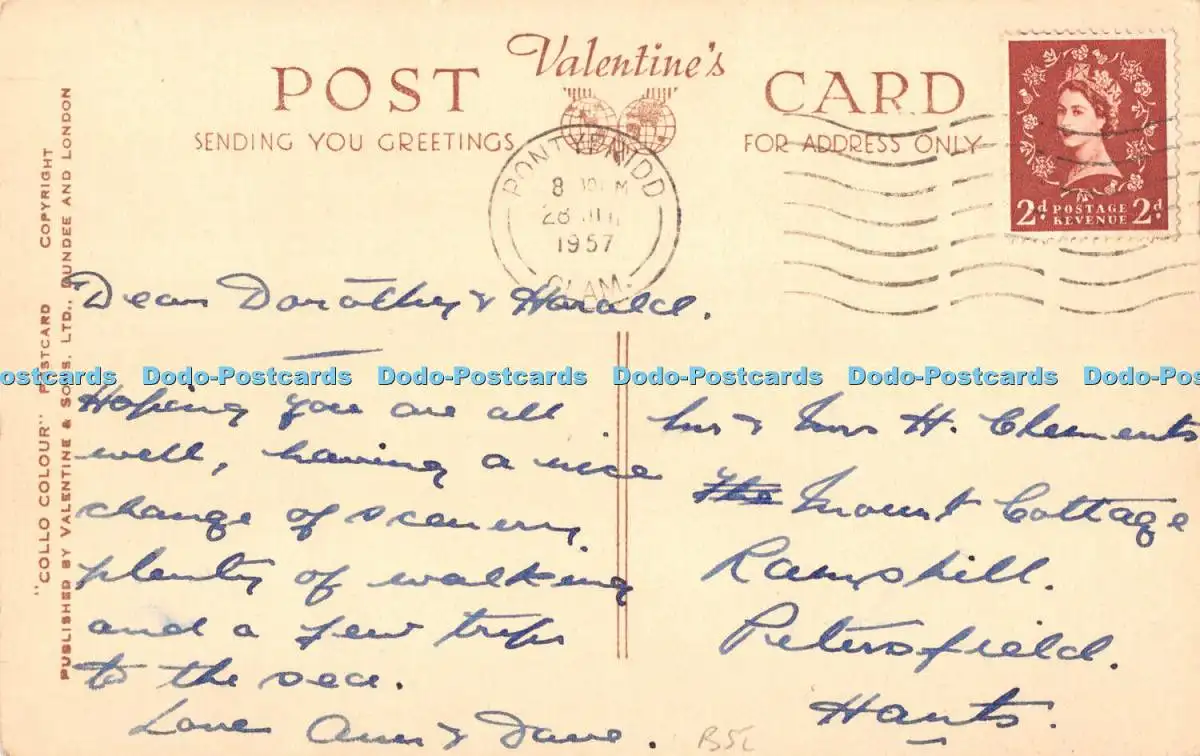 Valentine's
POST CARD
SENDING YOU GREETINGS
FOR ADDRESS ONLY
2d POSTAGE REVENUE 2d
PONTYPRIDD
8
28
1957
GLAM.
"COLLO COLOUR" POSTCARD COPYRIGHT
PUBLISHED BY VALENTINE & SONS, LTD., DUNDEE AND LONDON
Dear Dorothy & Harold.
Hoping you are all
well, having a nice
change of scenery
plenty of walking
and a few trips
to the sea.
Love Ann & Dave.
Mr & Mrs H. Clements
The Mount Cottage
Ramshill.
Petersfield.
Hants.
B5L
ostcards Dodo-Postcards Dodo-Postcards Dodo-Postcards Dodo-Postcards Dodo-Postc